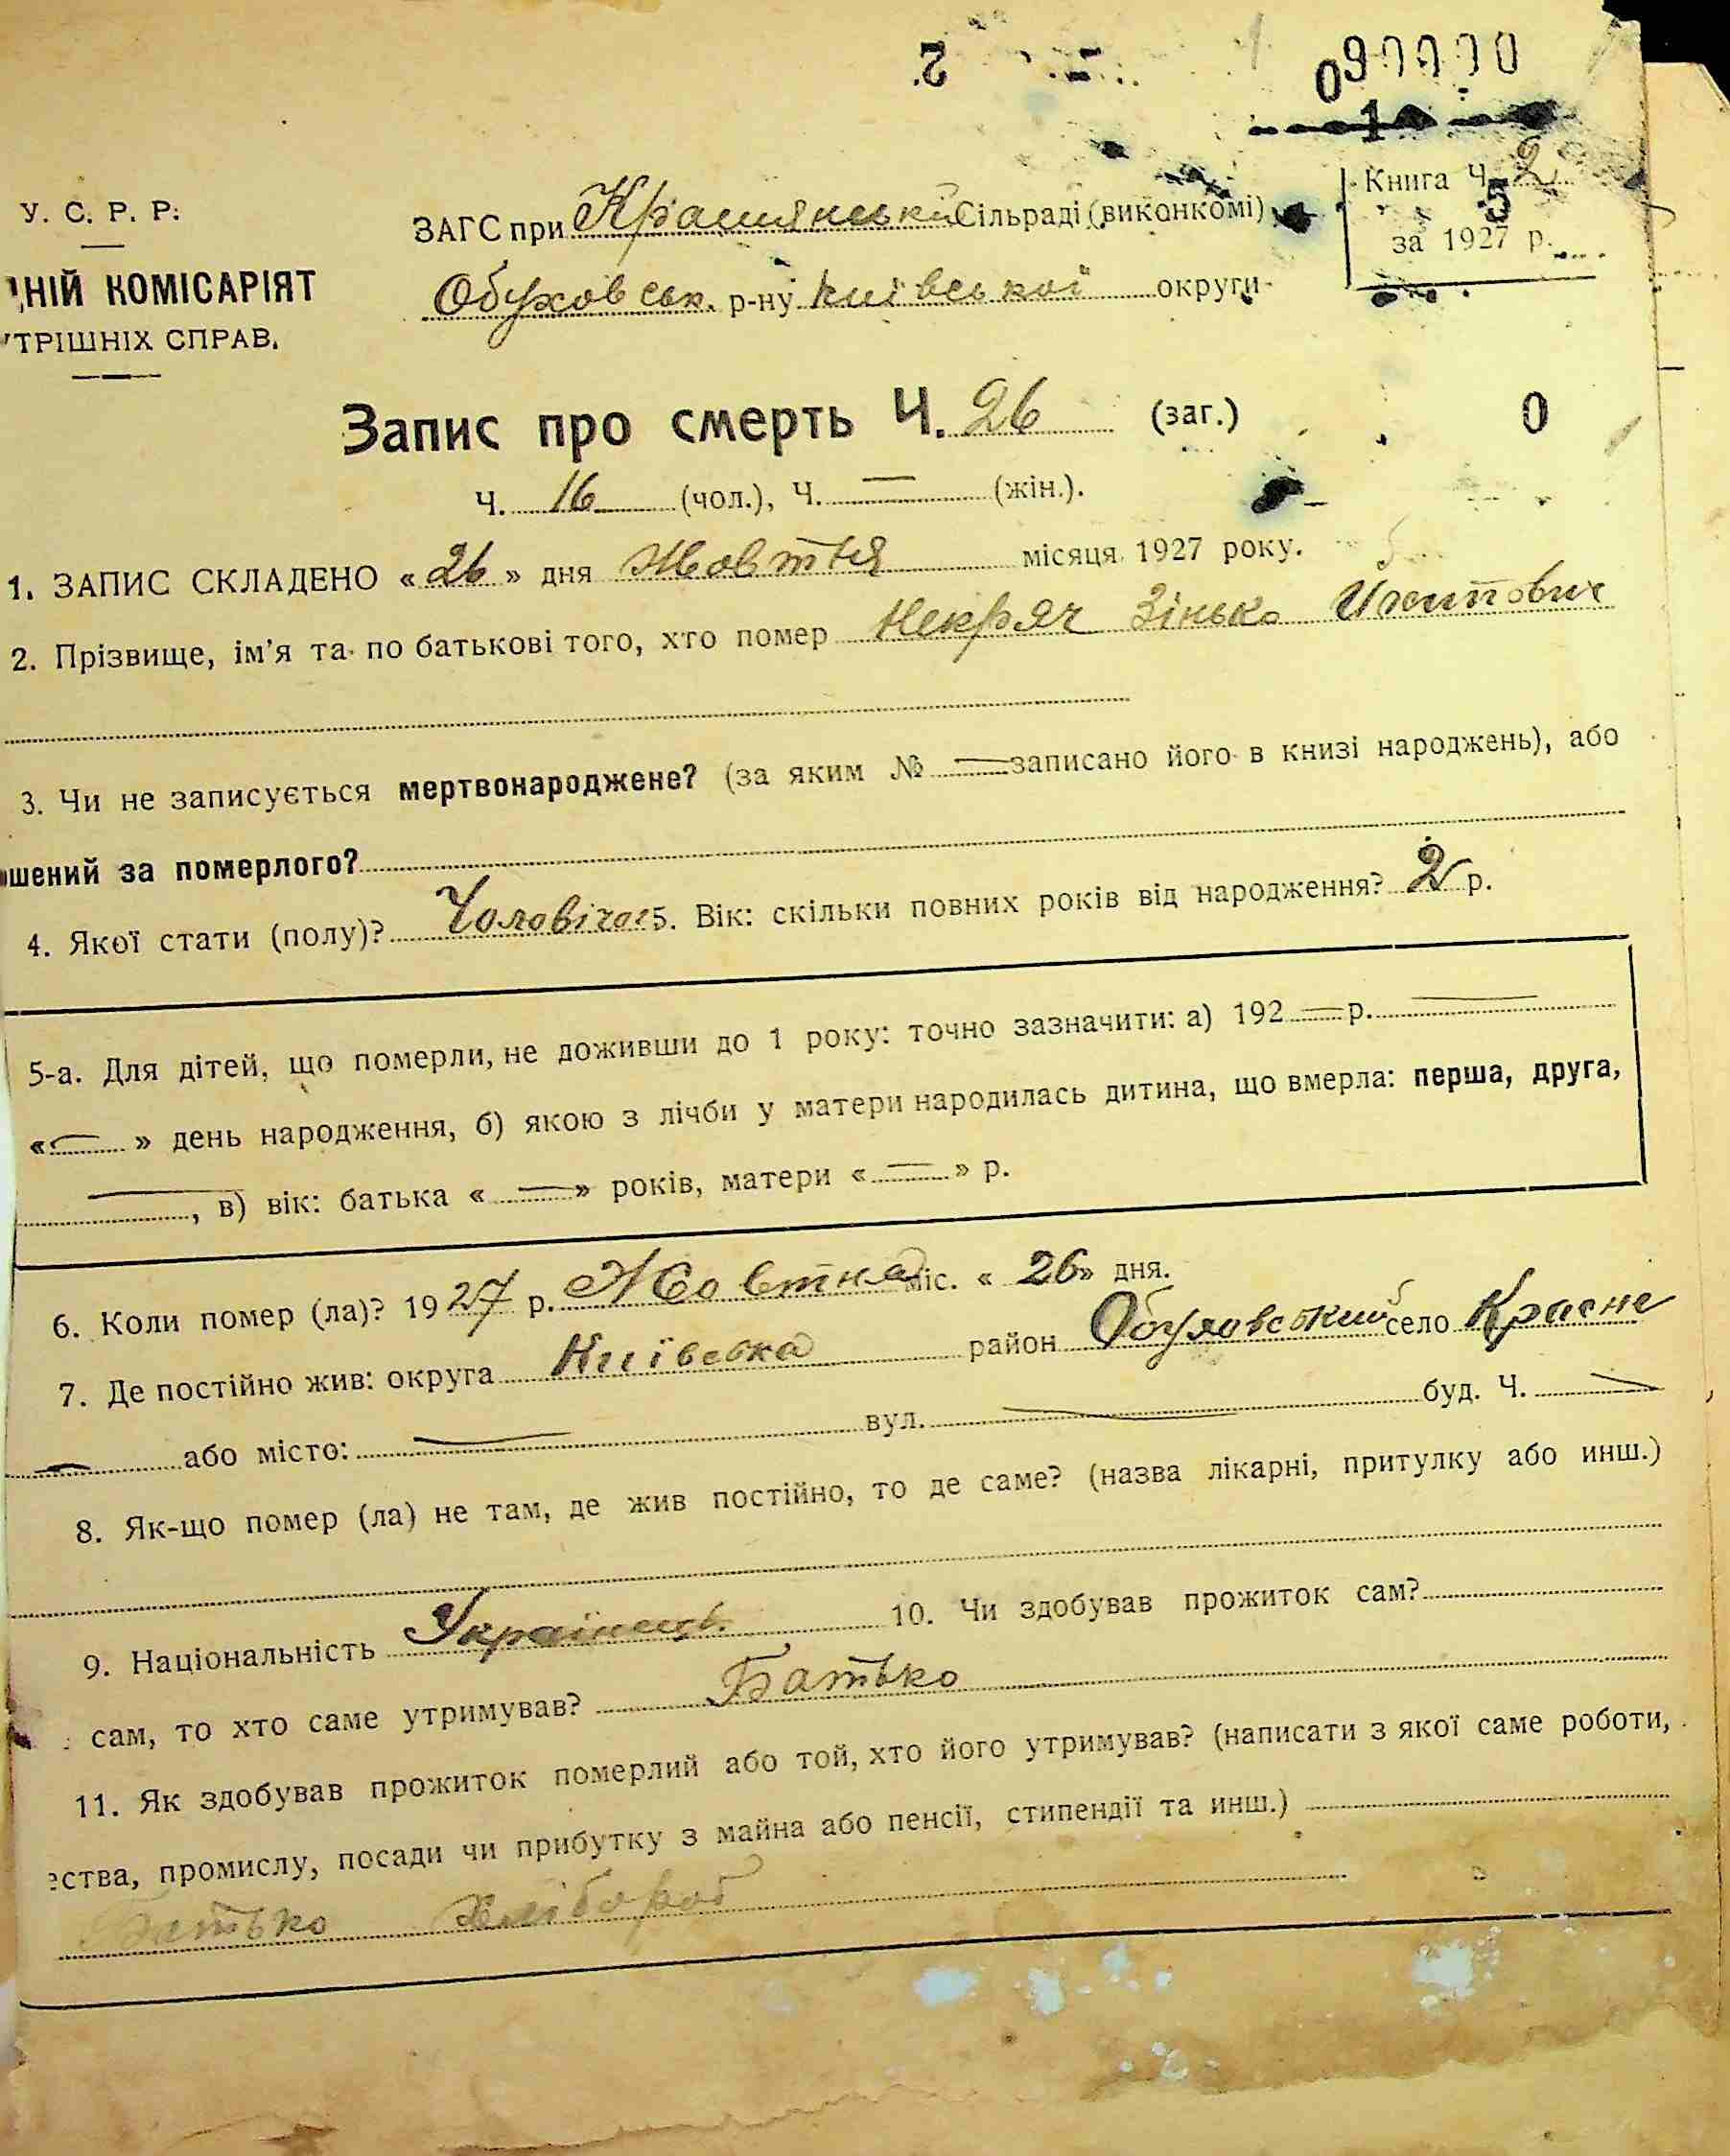 2
090000
1
Книга Ч. 2
5
за 1927 р.
У. С. Р. Р.
ЗАГС при Сільраді (виконкомі)
НІЙ КОМІСАРІЯТ
Обуховськ. р-ну Київської округи
ТРІШНІХ СПРАВ.
Запис про смерть Ч. 26 (заг.)
0
Ч. 16 (чол.), Ч. — (жін.).
1. ЗАПИС СКЛАДЕНО «26» дня Жовтня місяця 1927 року.
2. Прізвище, ім'я та по батькові того, хто помер Некряч Зінько
3. Чи не записується мертвонароджене? (за яким № — записано його в книзі народжень), або
шений за померлого?
4. Якої стати (полу)? Чоловічої 5. Вік: скільки повних років від народження? 2 р.
5-а. Для дітей, що померли, не доживши до 1 року: точно зазначити: а) 192 — р. —
« — » день народження, б) якою з лічби у матери народилась дитина, що вмерла: перша, друга,
—, в) вік: батька « — » років, матери « — » р.
6. Коли помер (ла)? 1927 р. Жовтня міс. « 26» дня.
7. Де постійно жив: округа Київська район Обуховський село Красне
— або місто: — вул. — буд. Ч. —
8. Як-що помер (ла) не там, де жив постійно, то де саме? (назва лікарні, притулку або инш.)
9. Національність Українець 10. Чи здобував прожиток сам?
сам, то хто саме утримував? Батько
11. Як здобував прожиток померлий або той, хто його утримував? (написати з якої саме роботи,
ества, промислу, посади чи прибутку з майна або пенсії, стипендії та инш.)
Батько Хлібороб